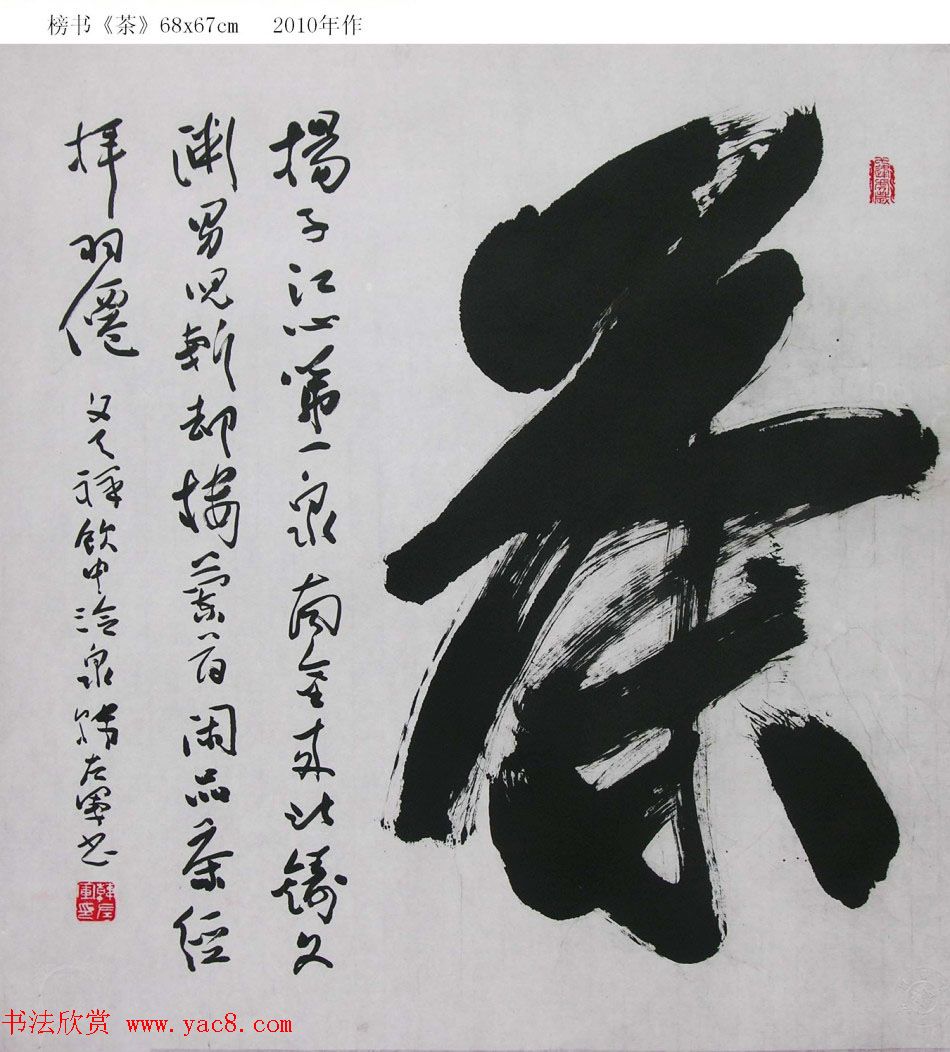 榜书《茶》68x67cm 2010年作
茶
揚子江心第一泉南金来此鑄文
渊男児斬却楼蘭首闲品茶経
拝羽僊
文天祥飲中泠泉 韩左军书
书法欣赏 www.yac8.com